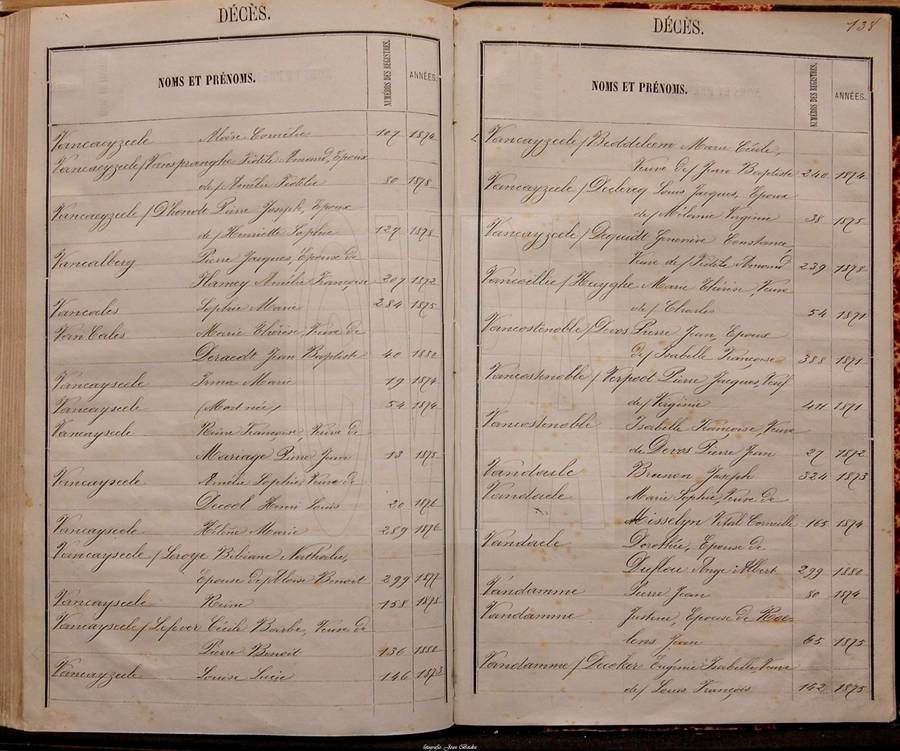 DÉCÈS.
NOMS ET PRÉNOMS. NUMÉROS DES REGISTRES. ANNÉES.
Vancayzeele Aloïse Cornélie 107 1874
Vancayzeele (Vanspranghe Fidèle Amand, Epoux
de) Amélie Fidélie 80 1878
Vancayzeele (Dhondt Pierre Joseph, Epoux
de) Henriette Sophie 127 1878
Vancalberg Pierre Jacques, Epoux de
Hamey Amélie Françoise 207 1872
Vancales Sophie Marie 284 1875
Van Cales Marie Thérèse, Veuve de
Deraedt Jean Baptiste 40 1882
Vancayseele Irma Marie 19 1874
Vancayseele (Mort née) 54 1874
Vancayseele Reine Françoise, Veuve de
Mariage Pierre Jean 13 1875
Vancayseele Amélie Sophie, Veuve de
Decool Henri Louis 20 1876
Vancayseele Hélène Marie 289 1876
Vancayseele (Leroye Bibiane Nathalie,
Epouse de) Aloïse Benoit 299 1877
Vancayseele Reine 158 1878
Vancayseele (Lefever Cécile Barbe, Veuve de
Pierre Benoit 136 1882
Vancayzeele Louise Lucie 146 1873
DÉCÈS. 138
NOMS ET PRÉNOMS. NUMÉROS DES REGISTRES. ANNÉES.
Vancayzeele (Marie Cécile,
Veuve de) Jean Baptiste 240 1874
Vancayzeele (Declercq Louis Jacques, Epoux
de) Mélanie Virginie 38 1875
Vancayzeele (Dequidt Geneviève Constance,
Veuve de) Fidèle Amand 239 1878
(Huyghe Marie Thérèse, Veuve
de) Charles 54 1871
Vancostenoble (Devos Pierre Jean, Epoux
de) Isabelle Françoise 388 1871
Vancostenoble (Verpoot Pierre Jacques, Veuf
de) Virginie 411 1871
Vancostenoble Isabelle Françoise, Veuve
de Devos Pierre Jean 27 1872
Vandaele Brunon Joseph 324 1873
Vandaele Marie Sophie, Veuve de
Misselyn Vital Corneille 165 1874
Vandaele Dorothée, Epouse de
Duflou Ange Albert 299 1880
Vandamme Pierre Jean 80 1874
Vandamme Justine, Epouse de
Jean 65 1875
Vandamme (Decoker Eugénie Isabelle, Veuve
de) Louis François 142 1875
fotografie Jean Beckx